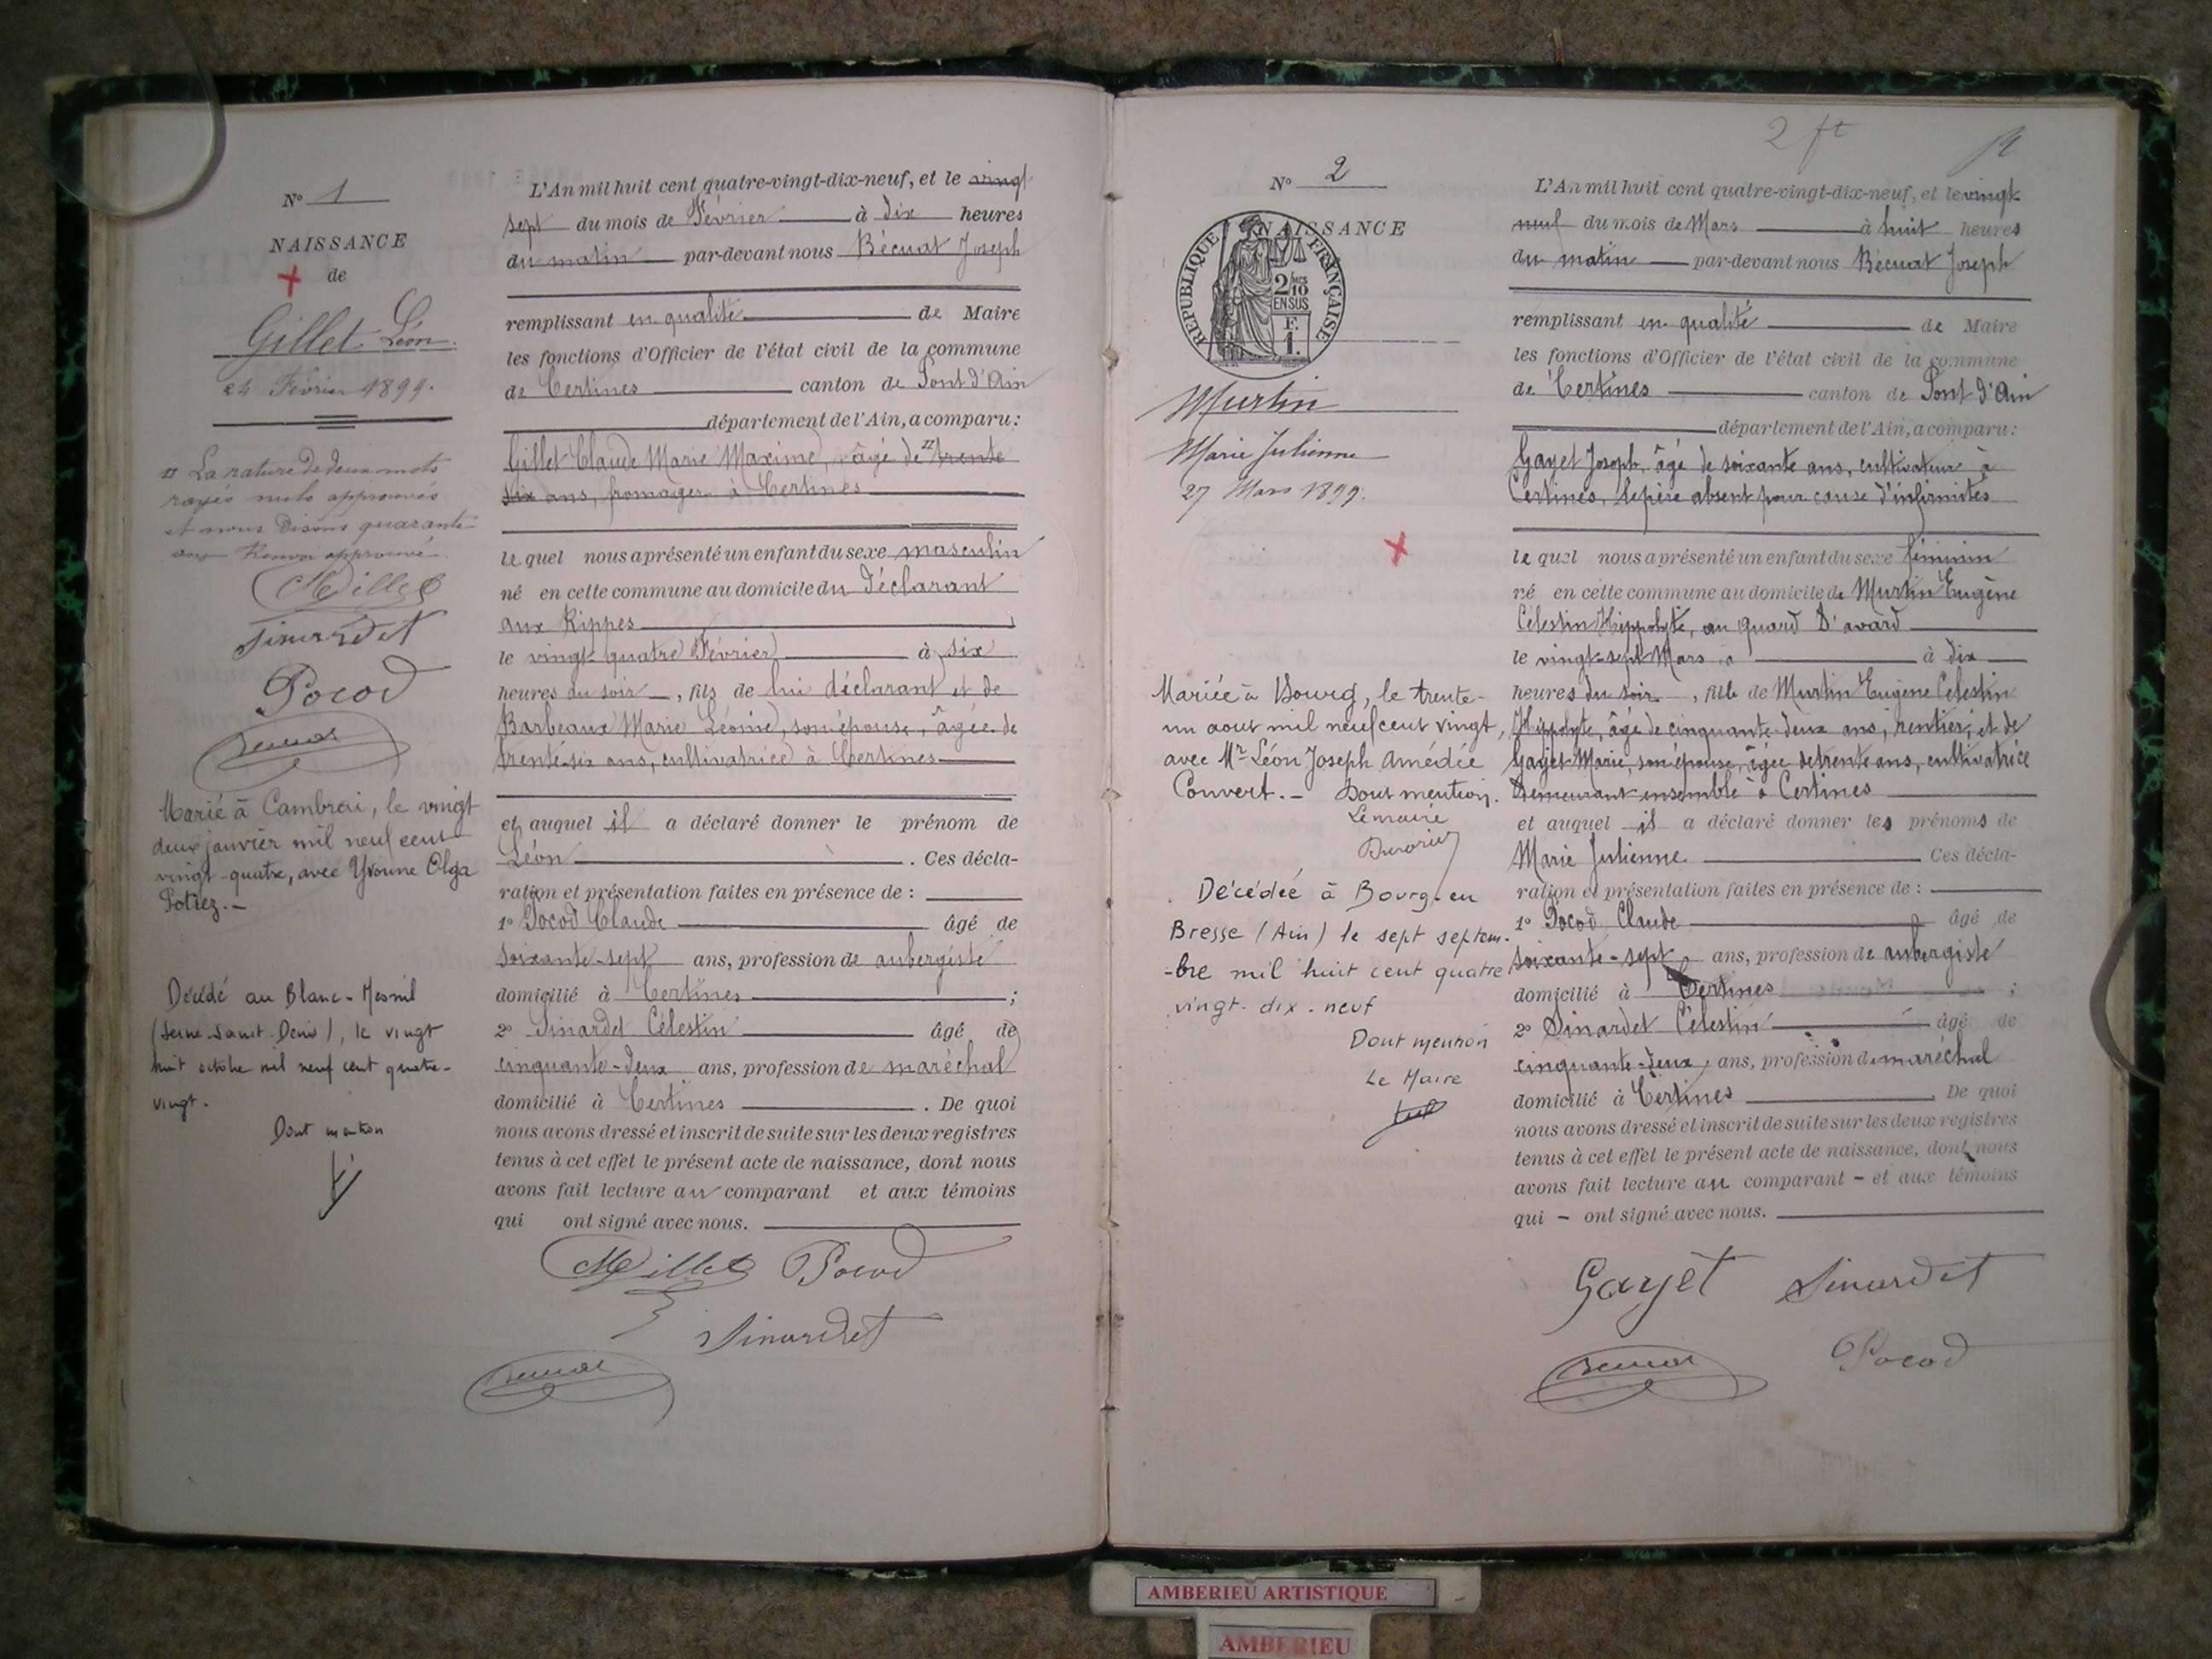 N° 1
NAISSANCE
de
Gillet Léon.
24 Février 1899.
La rature de deux mots
rayés nuls approuvés
et nous disons quarante
ans Renvoi approuvé.
Sinardet
Pocod
Marié à Cambrai, le vingt
deux janvier mil neuf cent
vingt-quatre, avec Yvonne Olga
Potiez.-
Décédé au Blanc-Mesnil
(Seine-Saint-Denis), le vingt
huit octobre mil neuf cent quatre-
vingt.
Dont mention
L'An mil huit cent quatre-vingt-dix-neuf, et le vingt
sept du mois de Février à dix heures
du matin par-devant nous Bécuat Joseph
remplissant en qualité de Maire
les fonctions d'Officier de l'état civil de la commune
de Certines canton de Pont d'Ain
département de l'Ain, a comparu:
Gillet Claude Marie Maxime, âgé de trente
six ans, fromager à Certines
le quel nous a présenté un enfant du sexe masculin
né en cette commune au domicile du déclarant
aux Rippes
le vingt-quatre Février à six
heures du soir, fils de lui déclarant et de
Barbeaux Marie Léonie, son épouse, âgée de
trente-six ans, cultivatrice à Certines
et auquel il a déclaré donner le prénom de
Léon. Ces décla-
ration et présentation faites en présence de :
1° Pocod Claude âgé de
soixante-sept ans, profession de aubergiste
domicilié à Certines ;
2° Sinardet Célestin âgé de
cinquante-deux ans, profession de maréchal
domicilié à Certines. De quoi
nous avons dressé et inscrit de suite sur les deux registres
tenus à cet effet le présent acte de naissance, dont nous
avons fait lecture au comparant et aux témoins
qui ont signé avec nous.
Pocod
Sinardet
2 ft
N° 2
NAISSANCE
REPUBLIQUE FRANÇAISE
2/10 MES
EN SUS
F.
1.
Murtin
Marie Julienne
27 Mars 1899.
Mariée à Bourg, le trente-
un aout mil neuf cent vingt,
avec Mr Léon Joseph Amédée
Convert.- Dont mention.
Le maire
Décédée à Bourg en
Bresse (Ain) le sept septem-
-bre mil huit cent quatre
vingt-dix-neuf
Dont mention
Le Maire
L'An mil huit cent quatre-vingt-dix-neuf, et le vingt
neuf du mois de Mars à huit heures
du matin par-devant nous Bécuat Joseph
remplissant en qualité de Maire
les fonctions d'Officier de l'état civil de la commune
de Certines canton de Pont d'Ain
département de l'Ain, a comparu:
Gayet Joseph, âgé de soixante ans, cultivateur à
Certines, le père absent pour cause d'infirmités
le quel nous a présenté un enfant du sexe féminin
né en cette commune au domicile de Murtin Eugène
Célestin Hippolyte, au quard d'avard
le vingt-sept Mars à dix
heures du soir, fille de Murtin Eugène Célestin
Hippolyte, âgé de cinquante-deux ans, rentier, et de
Gayet Marie, son épouse, âgée de trente ans, cultivatrice
demeurant ensemble à Certines
et auquel il a déclaré donner les prénoms de
Marie Julienne Ces décla-
ration et présentation faites en présence de :
1° Pocod Claude âgé de
soixante-sept ans, profession de aubergiste
domicilié à Certines ;
2° Sinardet Célestin âgé de
cinquante-deux, ans, profession de maréchal
domicilié à Certines. De quoi
nous avons dressé et inscrit de suite sur les deux registres
tenus à cet effet le présent acte de naissance, dont nous
avons fait lecture au comparant - et aux témoins
qui - ont signé avec nous.
Gayet Sinardet
Pocod
AMBERIEU ARTISTIQUE
AMBERIEU